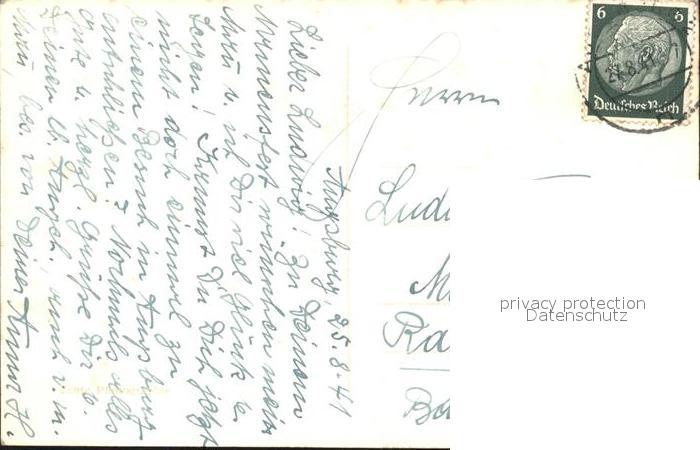 Augsburg, 25.8.41
Lieber Ludwig! Zu Deinem
Namensfest wünschen mein
Mann u. ich Dir viel Glück u.
Segen! Kannst Du Dich jetzt
nicht doch einmal zu
einem Besuch in Augsburg
entschließen? Nochmals alles
Gute u. herzl. Grüße Dir u.
Deinen lb. Angeh. auch v. m.
Mann, bes. von Deiner Anna H.
Herrn
Ludw
M
Ra
Ba
6 6
Deutsches Reich
27.8.41
privacy protection
Datenschutz